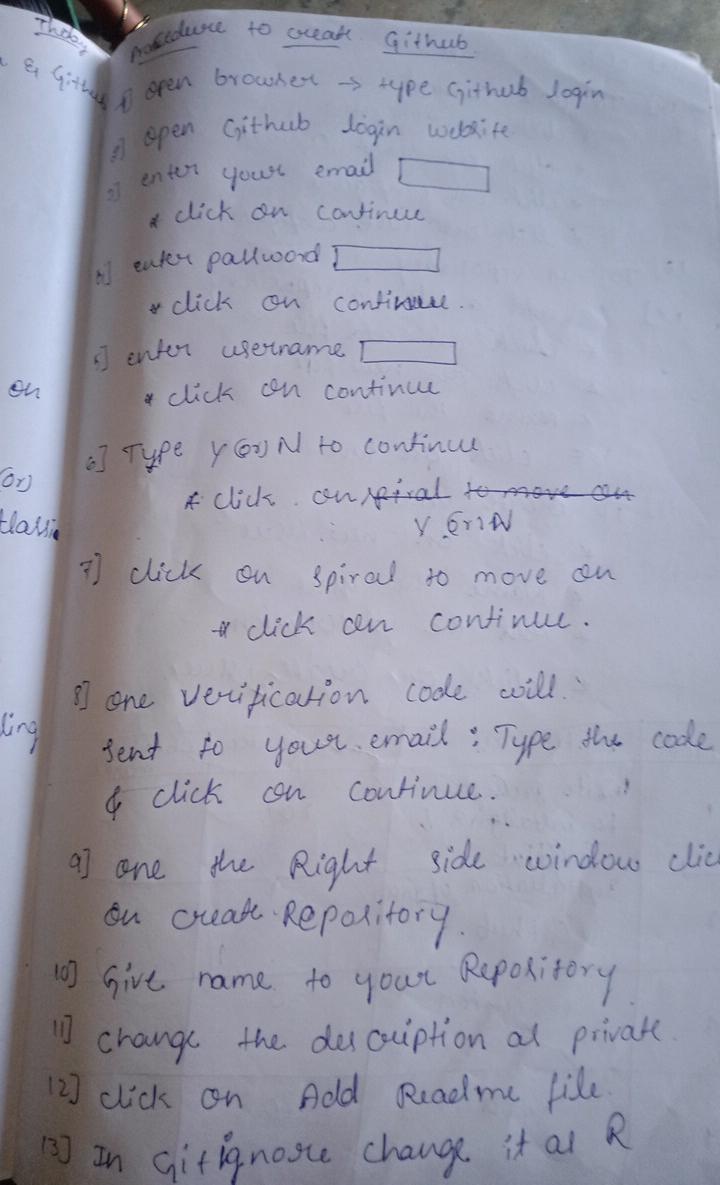 Theory
& Github
on
(or)
classi
ling
Procedure to create Github
1] open browser → type Github login
2] open Github login website
3] enter your email
* click on continue
4] enter password
* click on continue.
5] enter username
* click on continue
6] Type Y (or) N to continue
* click on spiral to move on
Y (or) N
7] click on spiral to move on
* click on continue.
8] one verification code will
sent to your email : Type the code
& click on continue.
9] one the Right side window clic
on create Repository.
10] Give name to your Repository
11] change the description as private.
12] click on Add Readme file.
13] In Gitignore change it as R